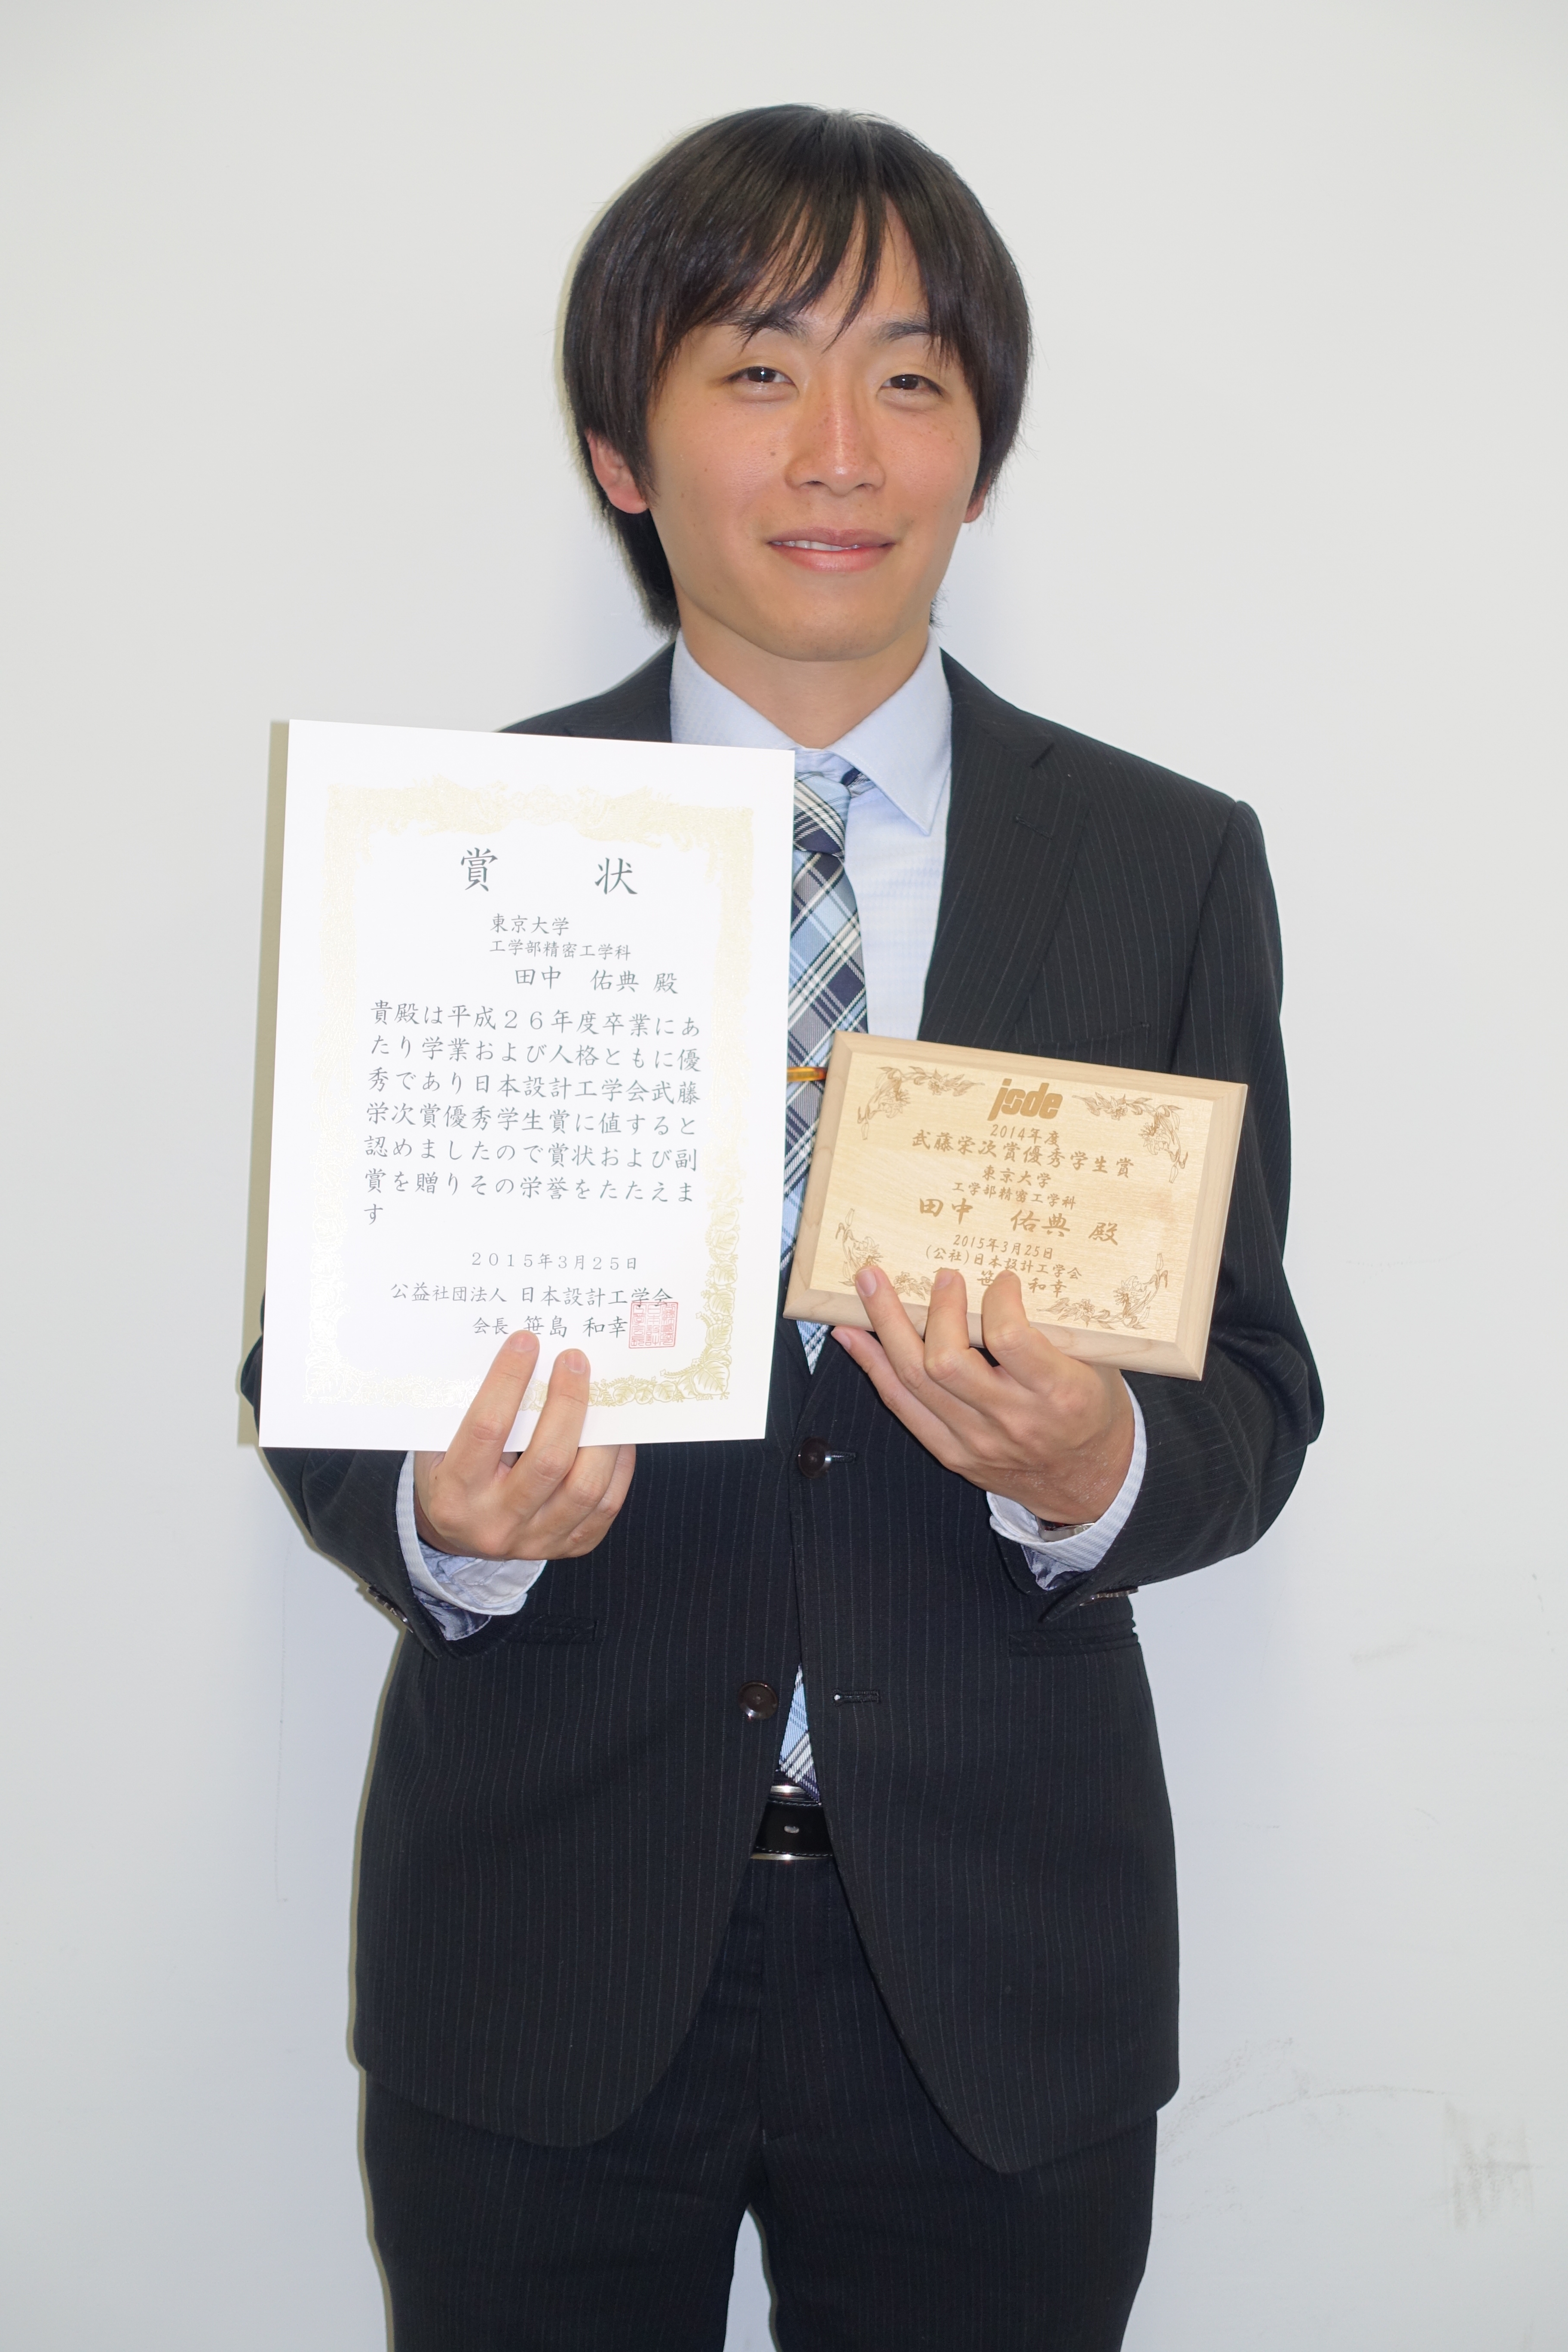 賞状
東京大学
工学部精密工学科
田中 佑典 殿
貴殿は平成26年度卒業にあ
たり学業および人格ともに優
秀であり日本設計工学会武藤
栄次賞優秀学生賞に値すると
認めましたので賞状および副
賞を贈りその栄誉をたたえま
す
2015年3月25日
公益社団法人 日本設計工学会
会長 笹島 和幸
jsde
2014年度
武藤栄次賞優秀学生賞
東京大学
工学部精密工学科
田中 佑典 殿
2015年3月25日
(公社)日本設計工学会
笹 和幸